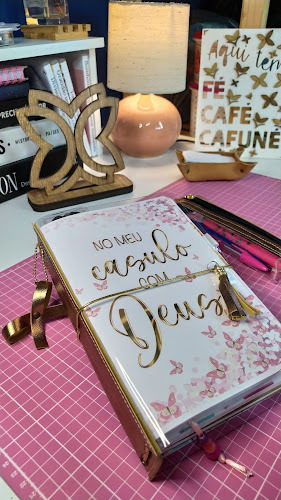 Aqui tem
FÉ
CAFÉ
CAFUNÉ
NO MEU
casulo
COM
Deus